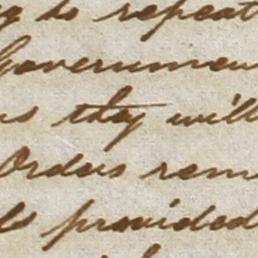 to repeat
Governmen
as they will
Orders rem
provided